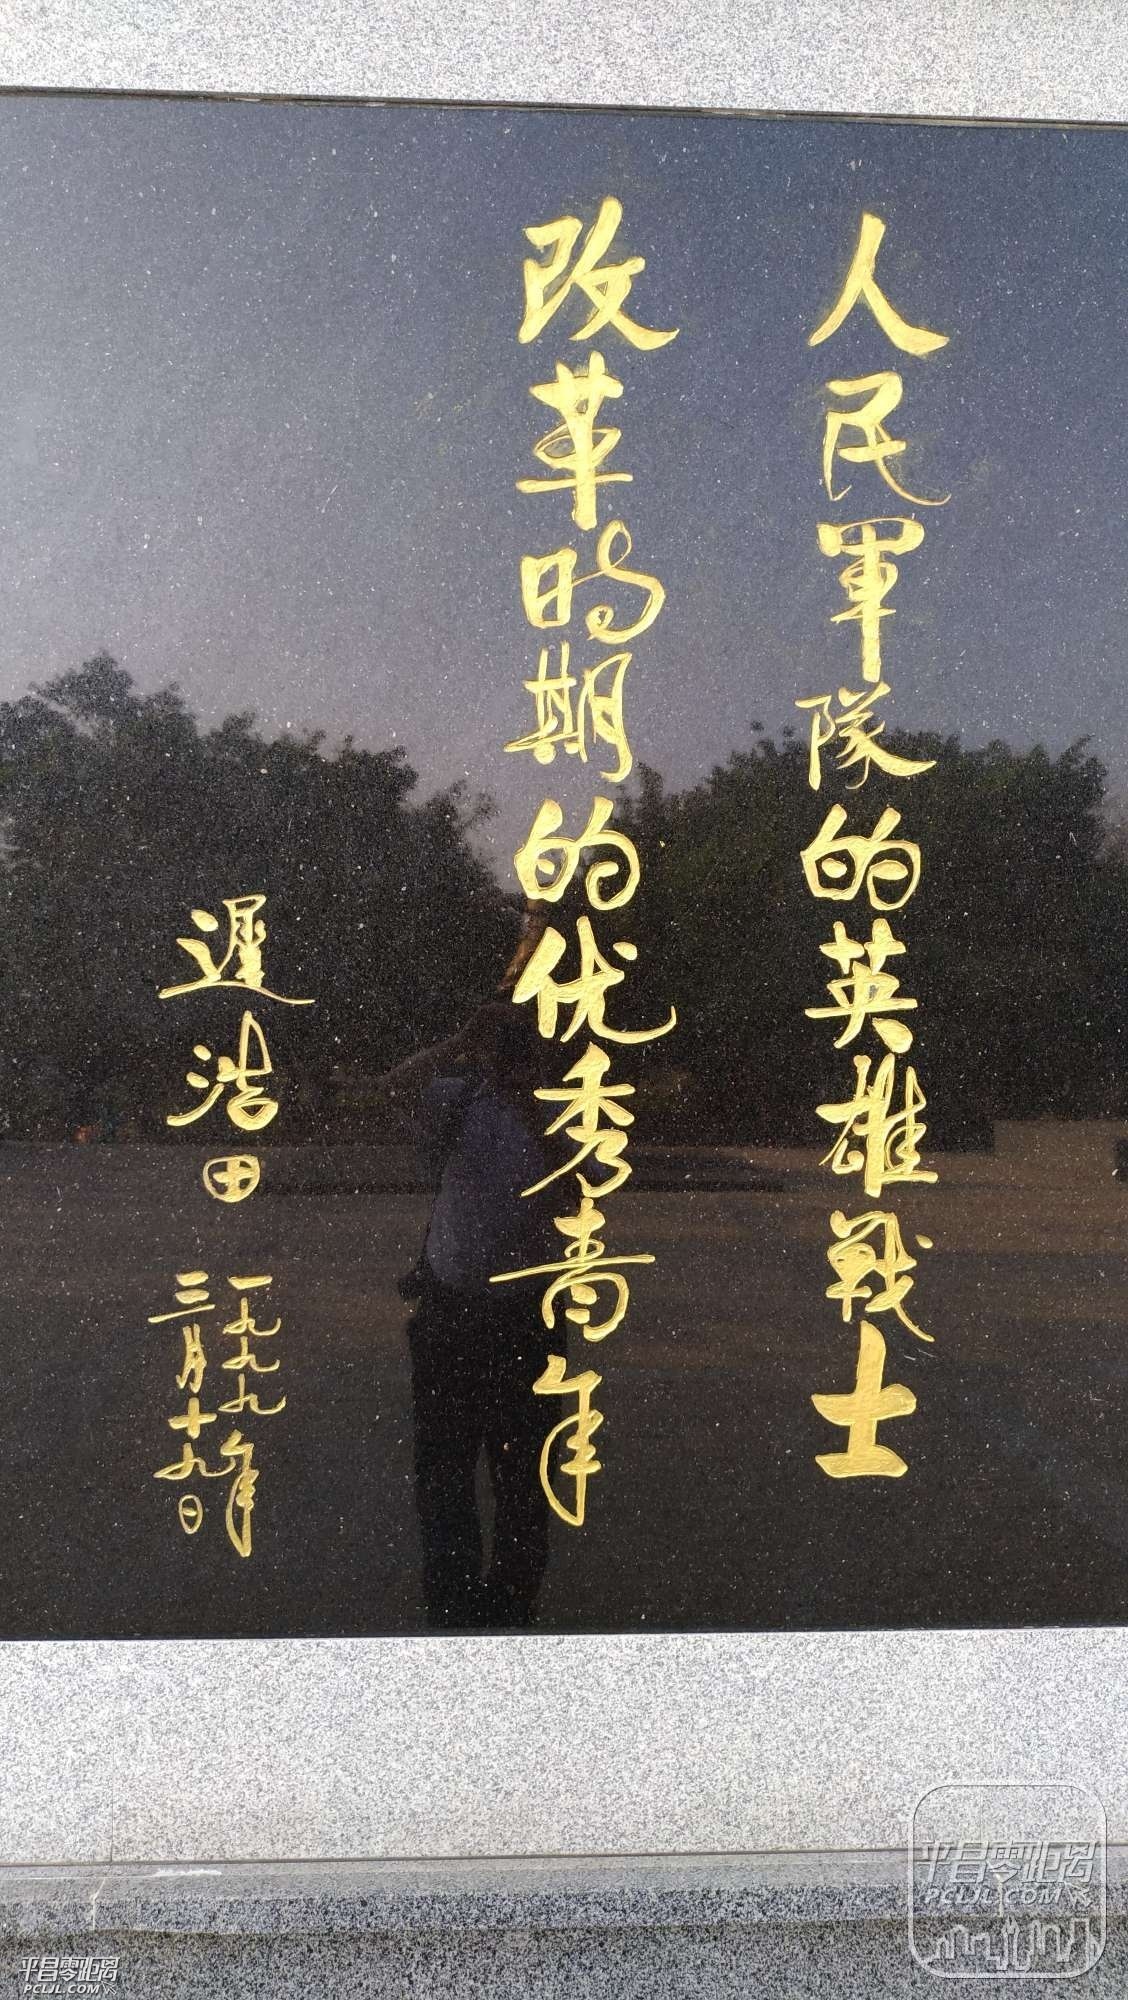 人民軍隊的英雄戰士
改革时期的优秀青年
遲浩田
一九九九年
三月十九日
平昌零距离
PCLJL.COM
平昌零距离
PCLJL.COM